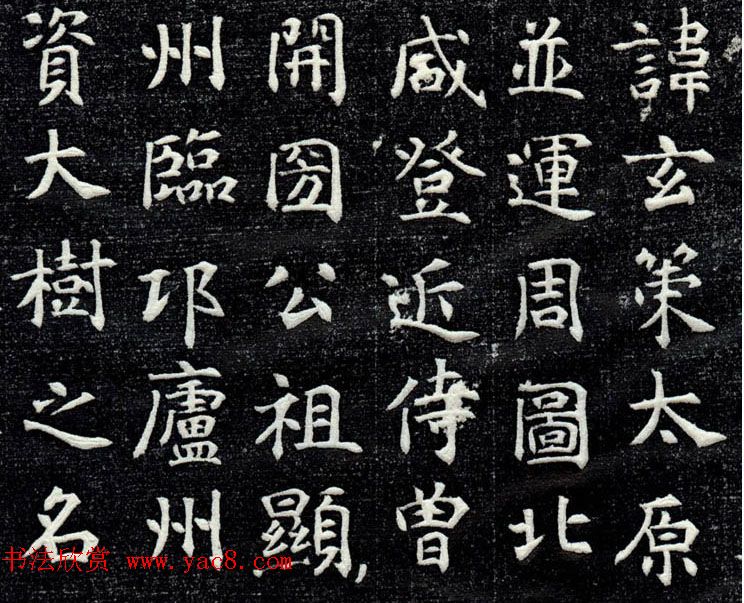 諱玄策太原
並運周圖北
咸登近侍曾
開圀公祖顯
州臨邛廬州
資大樹之名
书法欣赏 www.yac8.com